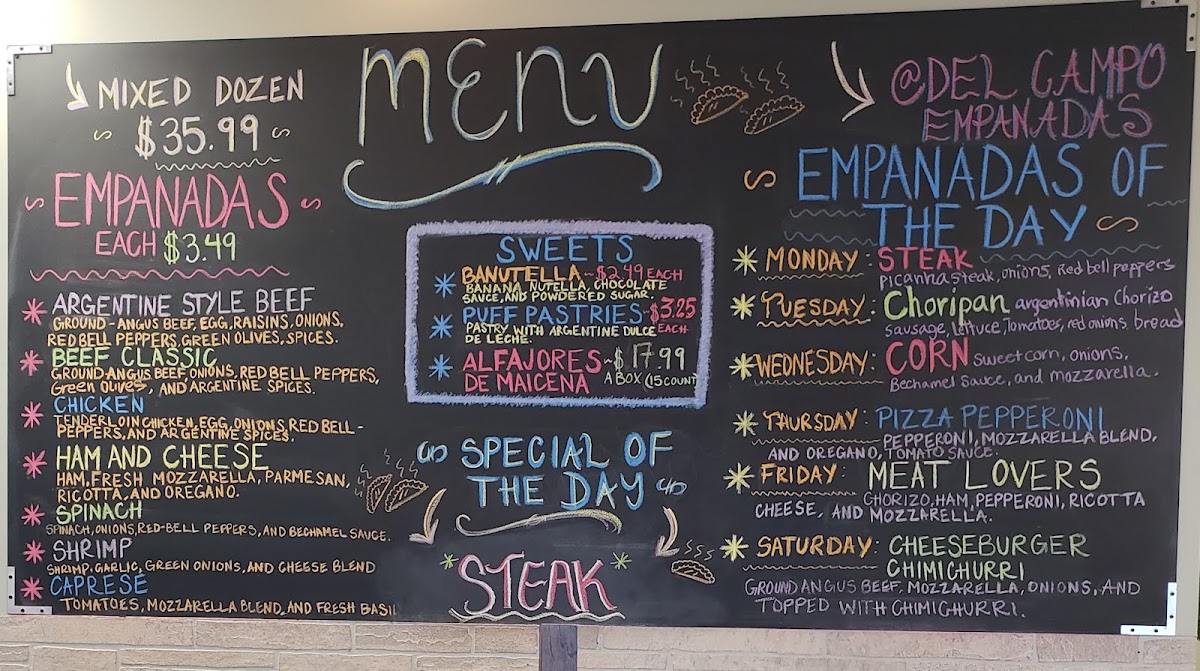 MENU
MIXED DOZEN
$35.99
EMPANADAS
EACH $3.49
ARGENTINE STYLE BEEF
GROUND-ANGUS BEEF, EGG, RAISINS, ONIONS,
RED BELL PEPPERS, GREEN OLIVES, SPICES.
BEEF CLASSIC
GROUND-ANGUS BEEF ONIONS, RED BELL PEPPERS,
Green olives, AND ARGENTINE SPICES.
CHICKEN
TENDERLOIN CHICKEN, EGG, ONIONS, RED BELL-
PEPPERS, AND ARGENTINE SPICES.
HAM AND CHEESE
HAM, FRESH MOZZARELLA, PARMESAN,
RICOTTA, AND OREGANO.
SPINACH
SPINACH, ONIONS, RED-BELL PEPPERS, AND BECHAMEL SAUCE.
SHRIMP
SHRIMP, GARLIC, GREEN ONIONS, AND CHEESE BLEND
CAPRESE
TOMATOES, MOZZARELLA BLEND, AND FRESH BASIL
SWEETS
BANUTELLA ~ $2.49 EACH
BANANA, NUTELLA, CHOCOLATE
SAUCE, AND POWDERED SUGAR.
PUFF PASTRIES - $3.25
PASTRY WITH ARGENTINE DULCE EACH
DE LECHE.
ALFAJORES ~ $17.99
DE MAICENA A BOX (15 COUNT)
SPECIAL OF
THE DAY
STEAK
@DEL CAMPO
EMPANADAS
EMPANADAS OF
THE DAY
MONDAY: STEAK
picanha steak, onions, Red bell peppers
TUESDAY: Choripan argentinian Chorizo
sausage, lettuce, Tomatoes, red onions bread
WEDNESDAY: CORN sweet corn, onions,
Bechamel sauce, and mozzarella.
THURSDAY: PIZZA PEPPERONI
PEPPERONI, MOZZARELLA BLEND,
AND OREGANO, TOMATO SAUCE.
FRIDAY: MEAT LOVERS
CHORIZO, HAM, PEPPERONI, RICOTTA
CHEESE, AND MOZZARELLA.
SATURDAY: CHEESEBURGER
CHIMICHURRI
GROUND ANGUS BEEF, MOZZARELLA, ONIONS, AND
TOPPED WITH CHIMICHURRI.